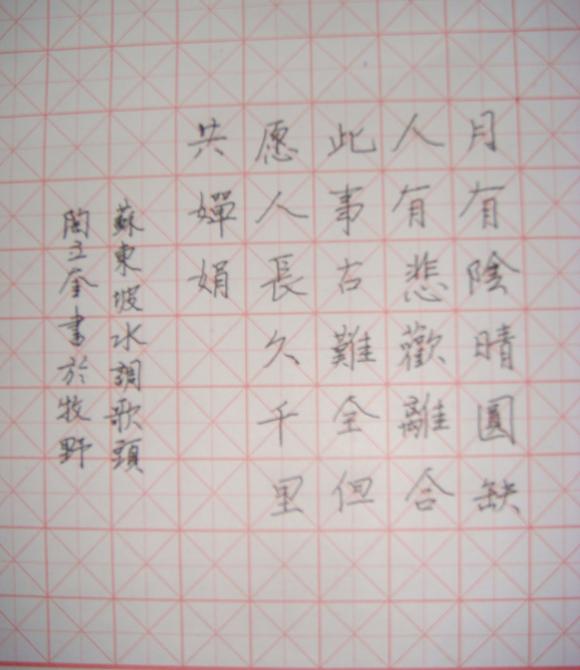 月有陰晴圓缺
人有悲歡離合
此事古難全但
愿人長久千里
共嬋娟
蘇東坡水調歌頭
陶立奎書於牧野